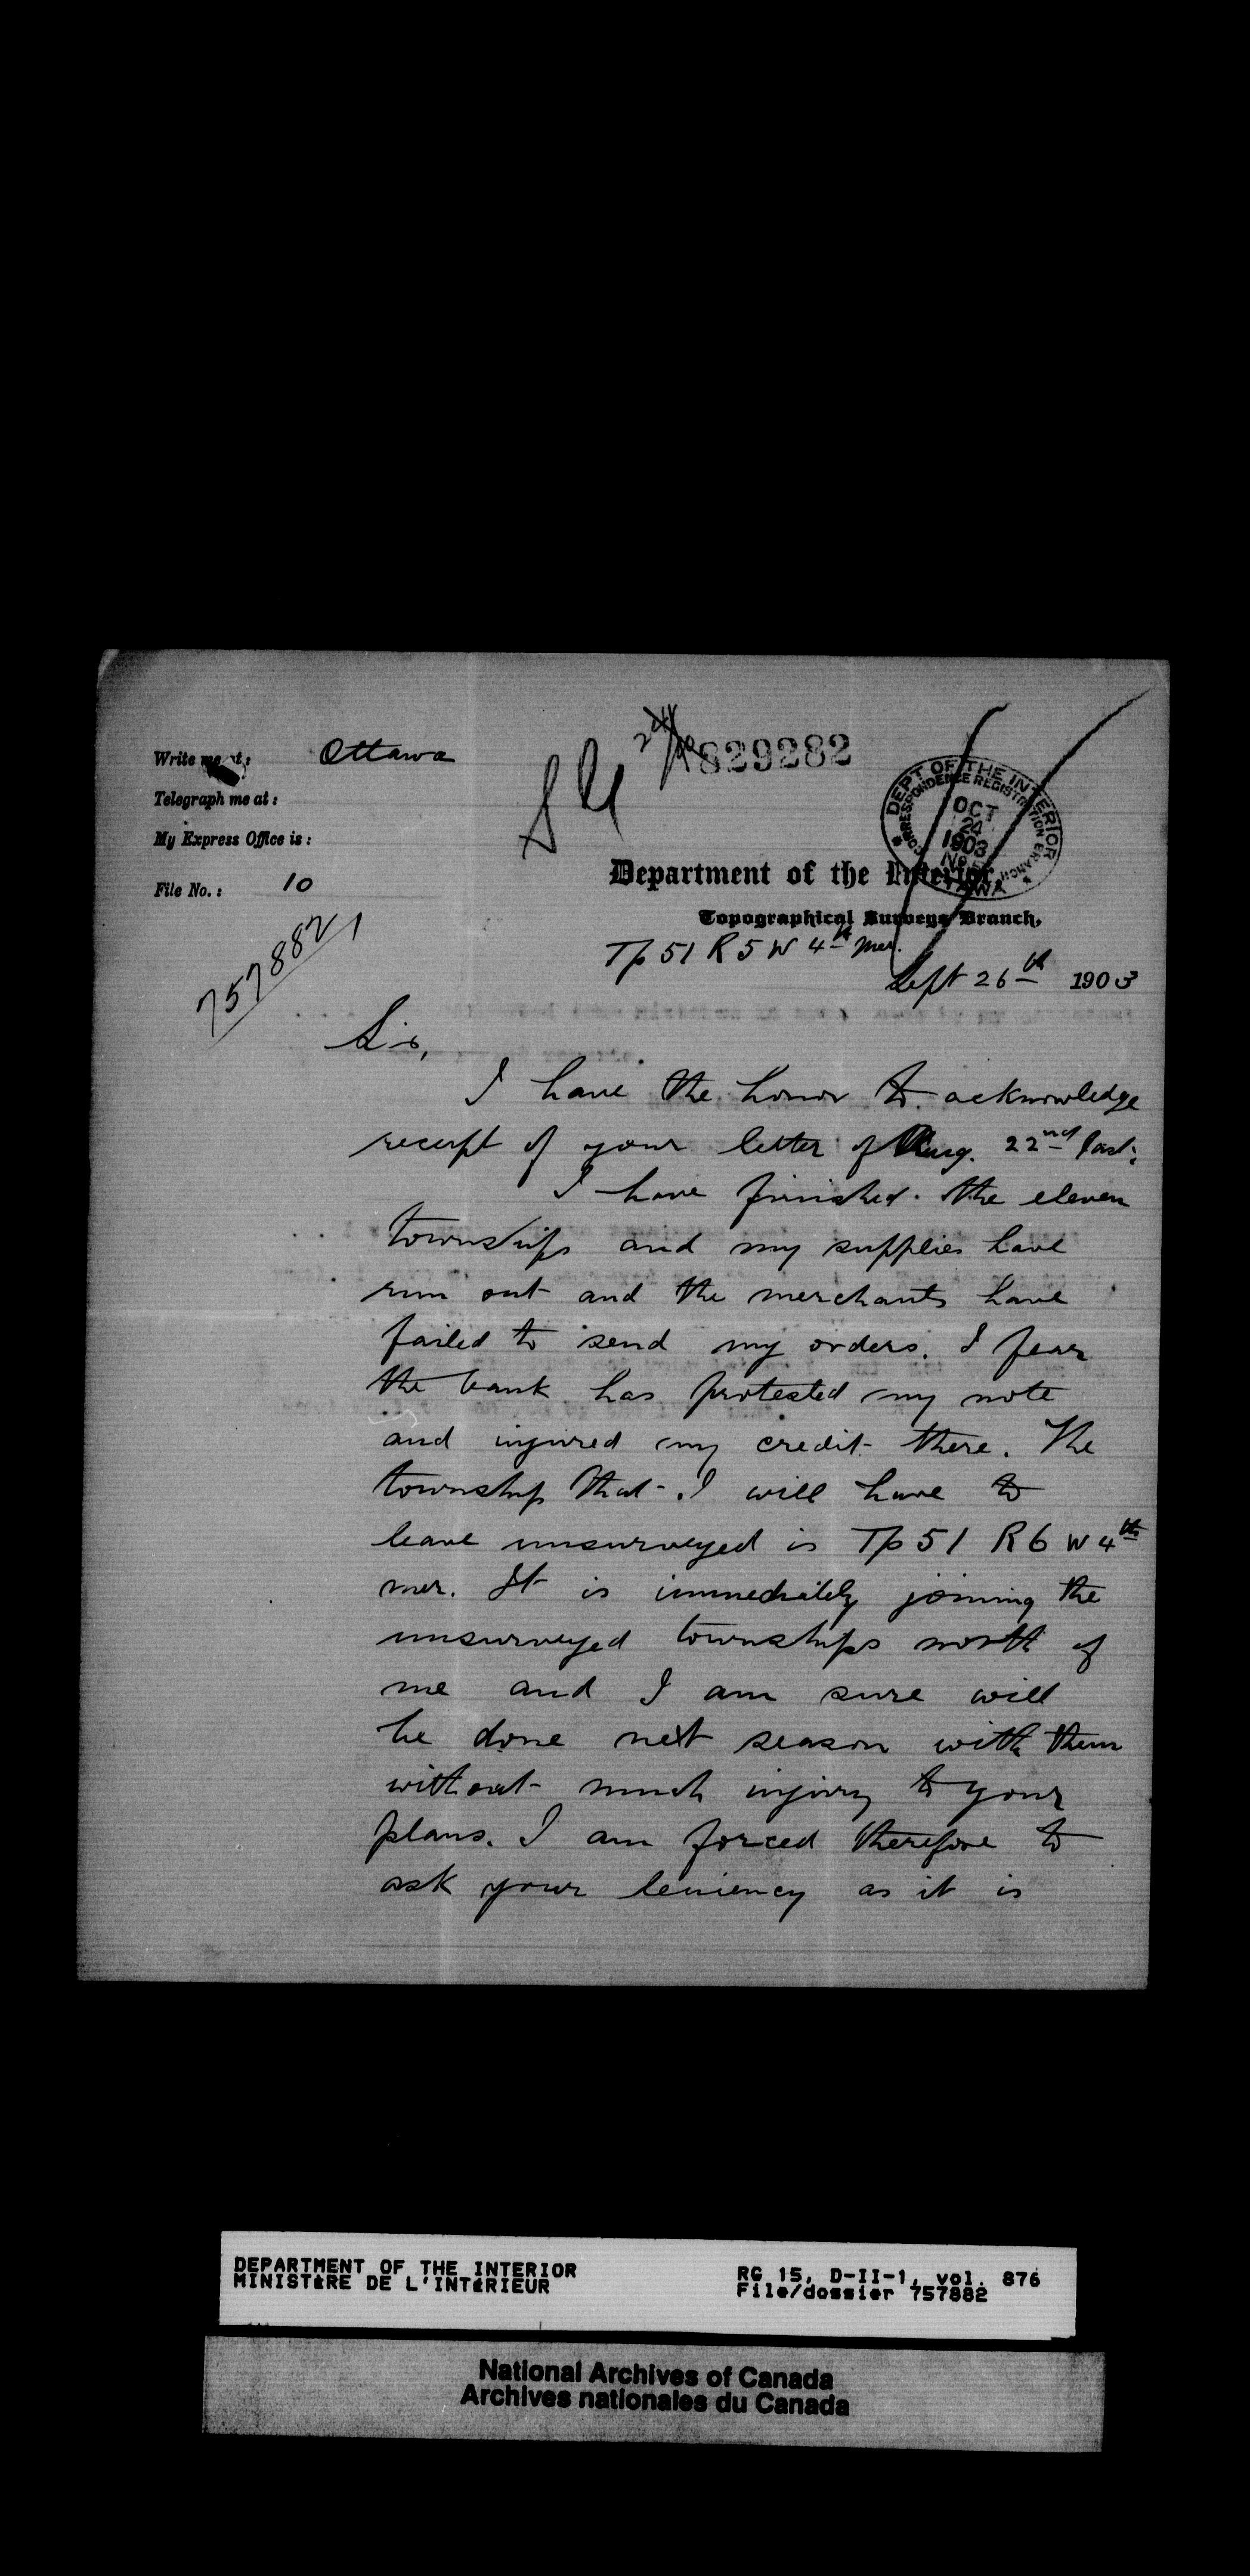 Write me at: Ottawa
829282
Telegraph me at:
My Express Office is:
File No.: 10
757882
DEPT OF THE INTERIOR
CORRESPONDENCE REGISTRATION BRANCH
OCT
24
1903
OTTAWA
Department of the Interior,
Topographical Surveys Branch,
Tp 51 R 5 W 4th Mer.
Sept 26th 1903
Sir,
I have the honor to acknowledge
receipt of your letter of Aug. 22nd last.
I have finished the eleven
townships and my supplies have
run out and the merchants have
failed to send my orders. I fear
the bank has protested my note
and injured my credit there. The
township that I will have to
leave unsurveyed is Tp 51 R 6 W 4th
mer. It is immediately joining the
unsurveyed townships north of
me and I am sure will
be done next season with them
without much injury to your
plans. I am forced therefore to
ask your leniency as it is
DEPARTMENT OF THE INTERIOR
MINISTÈRE DE L'INTÉRIEUR
RG 15, D-II-1, vol. 876
File/dossier 757882
National Archives of Canada
Archives nationales du Canada